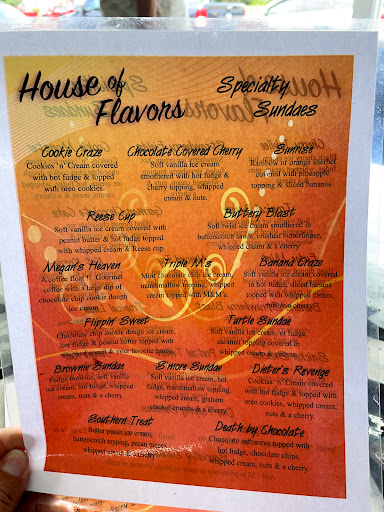 House of
Flavors
Specialty
Sundaes
Cookie Craze
Cookies 'n' Cream covered
with hot fudge & topped
with oreo cookies.
Chocolate Covered Cherry
Soft vanilla ice cream
smothered with hot fudge &
cherry topping, whipped
cream & nuts.
Sunrise
Rainbow or orange sherbet
covered with pineapple
topping & sliced bananas.
Reese Cup
Soft vanilla ice cream covered with
peanut butter & hot fudge topped
with whipped cream & Reese cup
Buttery Blast
Soft twist ice cream smothered in
butterscotch sauce, crushed butterfinger,
whipped cream & a cherry
Megan's Heaven
A coffee float Gourmet
coffee with a large dip of
chocolate chip cookie dough
ice cream
Triple M's
Mint chocolate chip ice cream,
marshmallow topping, whipped
cream topped with M&M's
Banana Craze
Soft vanilla ice cream covered
in hot fudge, sliced banana
topped with whipped cream,
nuts & a cherry
Flippin' Sweet
Chocolate chip cookie dough ice cream,
hot fudge & peanut butter topped with
whipped cream & your favorite candy
Turtle Sundae
Soft vanilla ice cream, hot fudge,
caramel topping covered in
whipped cream, nuts & a cherry
Brownie Sundae
Fudge brownie, soft vanilla
ice cream, hot fudge, whipped
cream, nuts & a cherry
S'more Sundae
Soft vanilla ice cream, hot
fudge, marshmallow topping,
whipped cream, graham
cracker crumbs & a cherry
Dieter's Revenge
Cookies 'n' Cream covered
with hot fudge topped with
oreo cookies, whipped cream,
nuts & a cherry.
Southern Treat
Butter pecan ice cream,
butterscotch topping, pecan pieces,
whipped cream & a cherry
Death by Chocolate
Chocolate soft serve topped with
hot fudge, chocolate chips,
whipped cream, nuts & a cherry